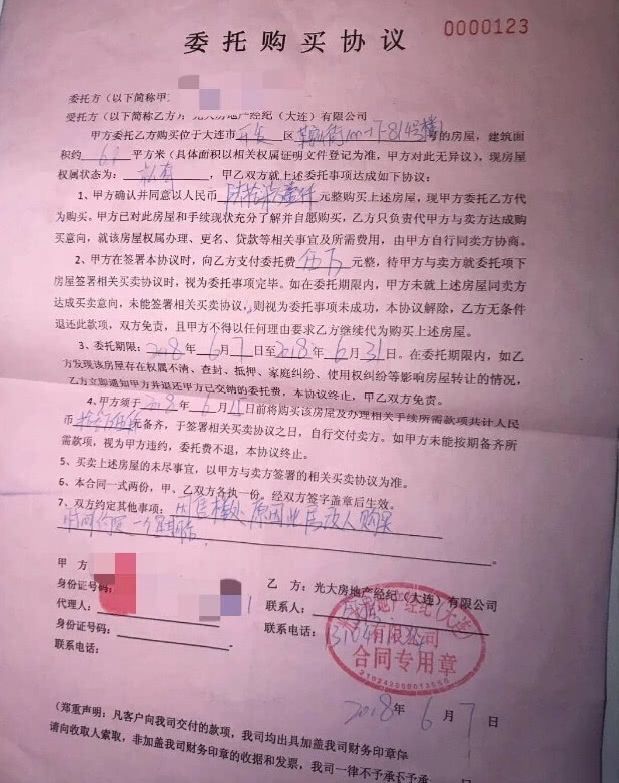 0000123
委托购买协议
委托方（以下简称甲
受托方（以下简称乙方）：光大房地产经纪（大连）有限公司
甲方委托乙方购买位于大连市 区 的房屋，建筑面
积约 平方米（具体面积以相关权属证明文件登记为准，甲方对此无异议），现房屋
权属状态为： 私有 ，甲乙双方就上述委托事项达成如下协议：
1、甲方确认并同意以人民币 元整购买上述房屋，现甲方委托乙方代
为购买。甲方已对此房屋和手续现状充分了解并自愿购买，乙方只负责代甲方与卖方达成购
买意向，就该房屋权属办理、更名、贷款等相关事宜及所需费用，由甲方自行同卖方协商。
2、甲方在签署本协议时，向乙方支付委托费 伍万 元整，待甲方与卖方就委托项下
房屋签署相关买卖协议时，视为委托事项完毕。如在委托期限内，甲方未就上述房屋同卖方
达成买卖意向，未能签署相关买卖协议，则视为委托事项未成功，本协议解除，乙方无条件
退还此款项，双方免责，且甲方不得以任何理由要求乙方继续代为购买上述房屋。
3、委托期限：2018年 6 月 7 日至2018年 6 月 31 日。在委托期限内，如乙
方发现该房屋存在权属不清、查封、抵押、家庭纠纷、使用权纠纷等影响房屋转让的情况，
乙方立即通知甲方并退还甲方已交纳的委托费，本协议终止，甲乙双方免责。
4、甲方须于 2018 年 6 月 日前将购买该房屋及办理相关手续所需款项共计人民
币 元备齐，于签署相关买卖协议之日，自行交付卖方。如甲方未能按期备齐所
需款项，视为甲方违约，委托费不退，本协议终止。
5、买卖上述房屋的未尽事宜，以甲方与卖方签署的相关买卖协议为准。
6、本合同一式两份，甲、乙双方各执一份。经双方签字盖章后生效。
7、双方约定其他事项：因售楼处原因业 购买
。
甲 方
身份证号码：
代理人：
身份证号码：
联系电话：
乙 方：光大房地产经纪（大连）有限公司
联系人：
联系电话：
地产经纪（大连
有限公司
合同专用章
2018年 6 月 7 日
（郑重声明：凡客户向我司交付的款项，我司均出具加盖我司财务印章
请向收取人索取，非加盖我司财务印章的收据和发票，我司一律不予承